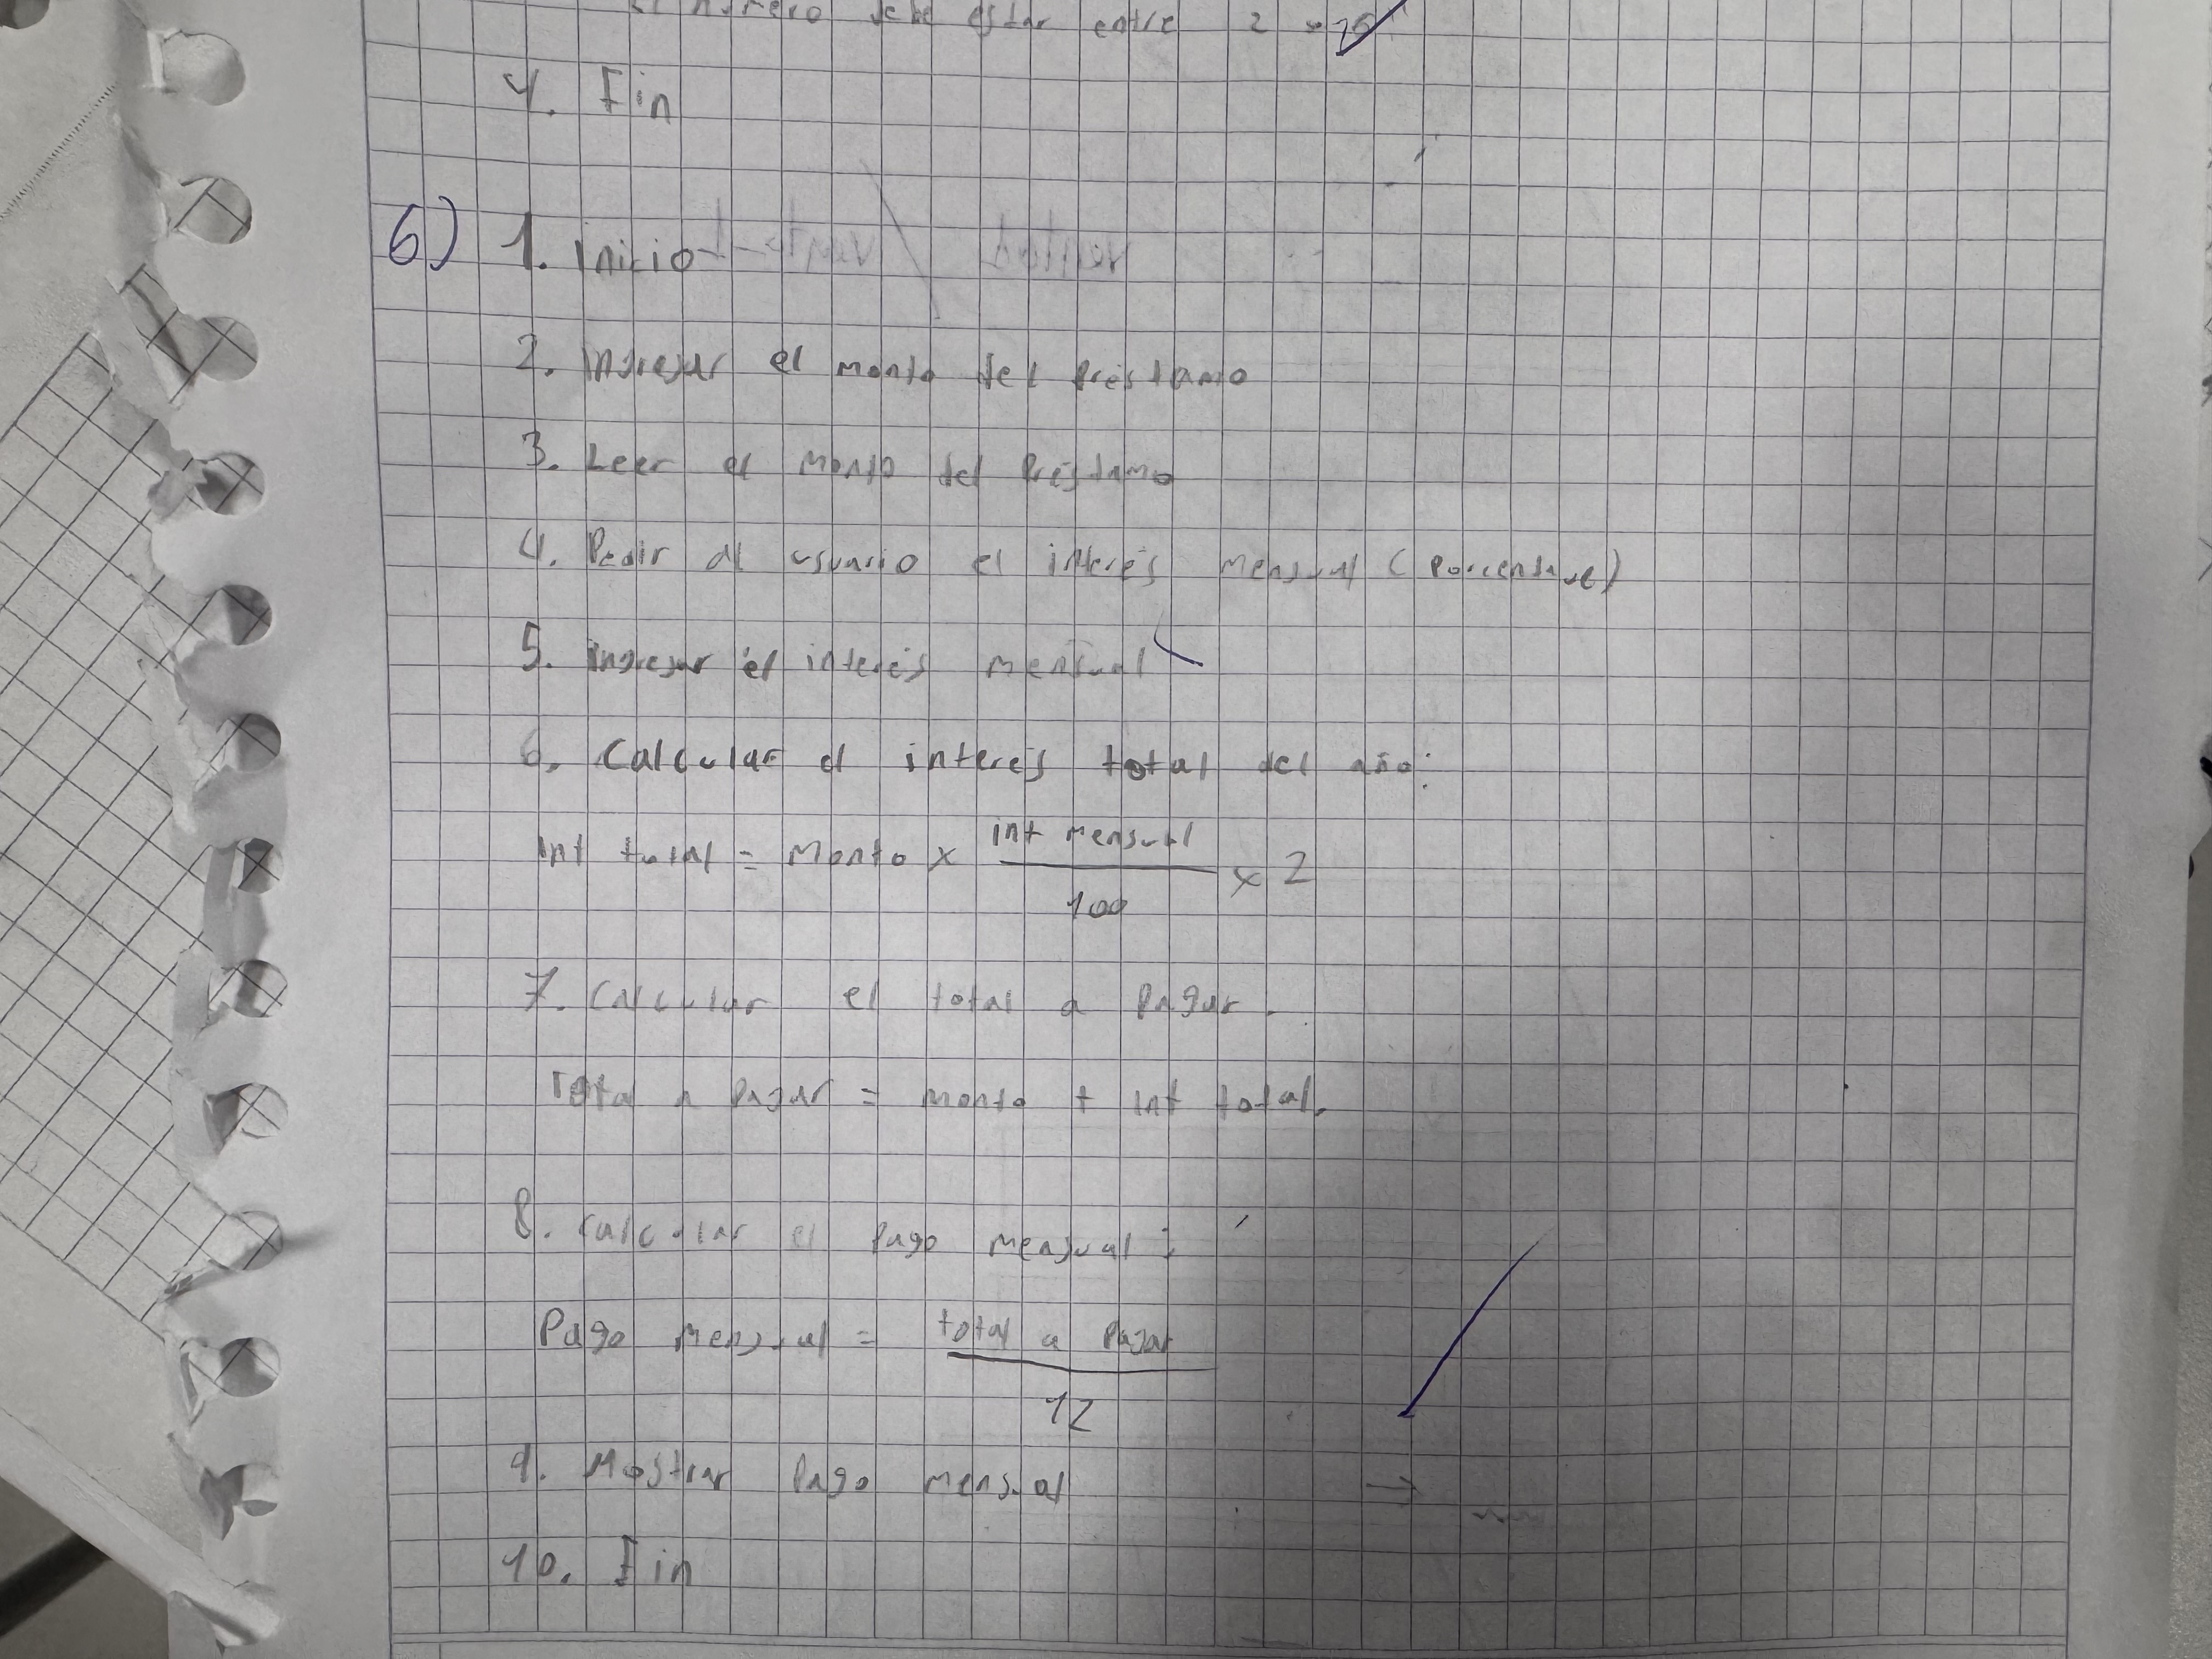 El numero debe estar entre 2 y
4. Fin
6) 1. Inicio
2. Ingresar el monto del Préstamo
3. Leer el monto del Préstamo
4. Pedir al usuario el interés mensual (Porcentaje)
5. Ingresar el interés mensual
6. Calcular el interés total del año:
Int total = Monto x int mensual / 100 x 2
7. Calcular el total a Pagar.
Total a Pagar = monto + int total.
8. Calcular el Pago mensual:
Pago Mensual = total a Pagar / 12
9. Mostrar Pago mensual
10. Fin